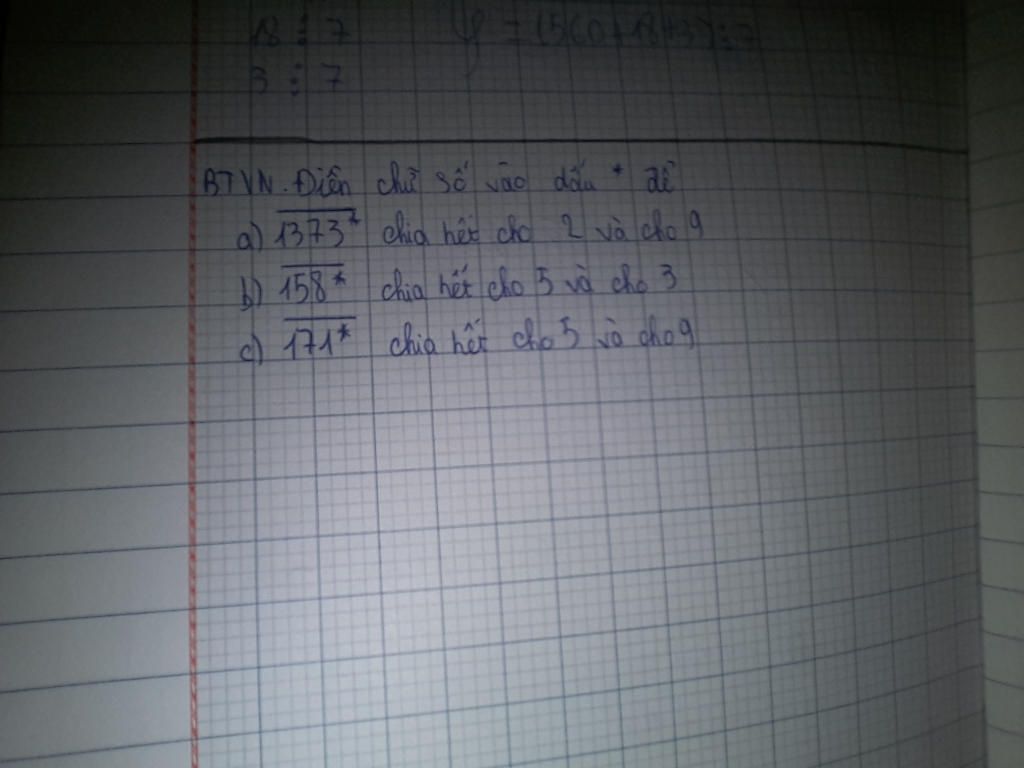 18 ⋮ 7 = (560 + 18 + 3) ⋮ 7
3 ⋮ 7
BTVN. Điền chữ số vào dấu * để
a) 1373* chia hết cho 2 và cho 9
b) 158* chia hết cho 5 và cho 3
c) 171* chia hết cho 5 và cho 9